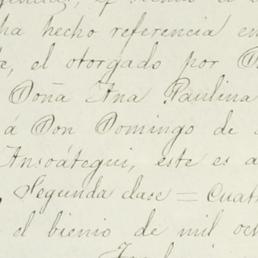 ha hecho referencia en
el otorgado por D
Doña Ana Paulina
á Don Domingo de
Ansoátegui, este es a
Segunda clase = Cuat
el bienio de mil och